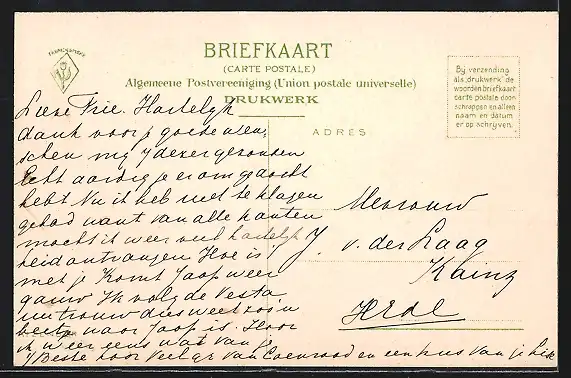 FABRIEKSMERK
BRIEFKAART
(CARTE POSTALE)
Algemeene Postvereeniging (Union postale universelle)
DRUKWERK
Bij verzending
als "drukwerk" de
woorden briefkaart
carte postale door-
schrappen en alleen
naam en datum
er op schrijven.
ADRES
Lieve Hartelijk
dank voor je goede wen
schen mij gezonden
Echt aardig je er om gedacht
hebt Nu ik heb niet te klagen
gehad want van alle kanten
mocht ik weer veel hartelijk
heid ontvangen Hoe is
met je Komt Jaap weer
gauw Ik volg de Vesta
trouw dus weet zoo'n
beetje waar Jaap is. Hoor
ik weer eens wat van je
Beste hoor Veel gr van en een kus van je
Mevrouw
J. v. der Laag
Kainz